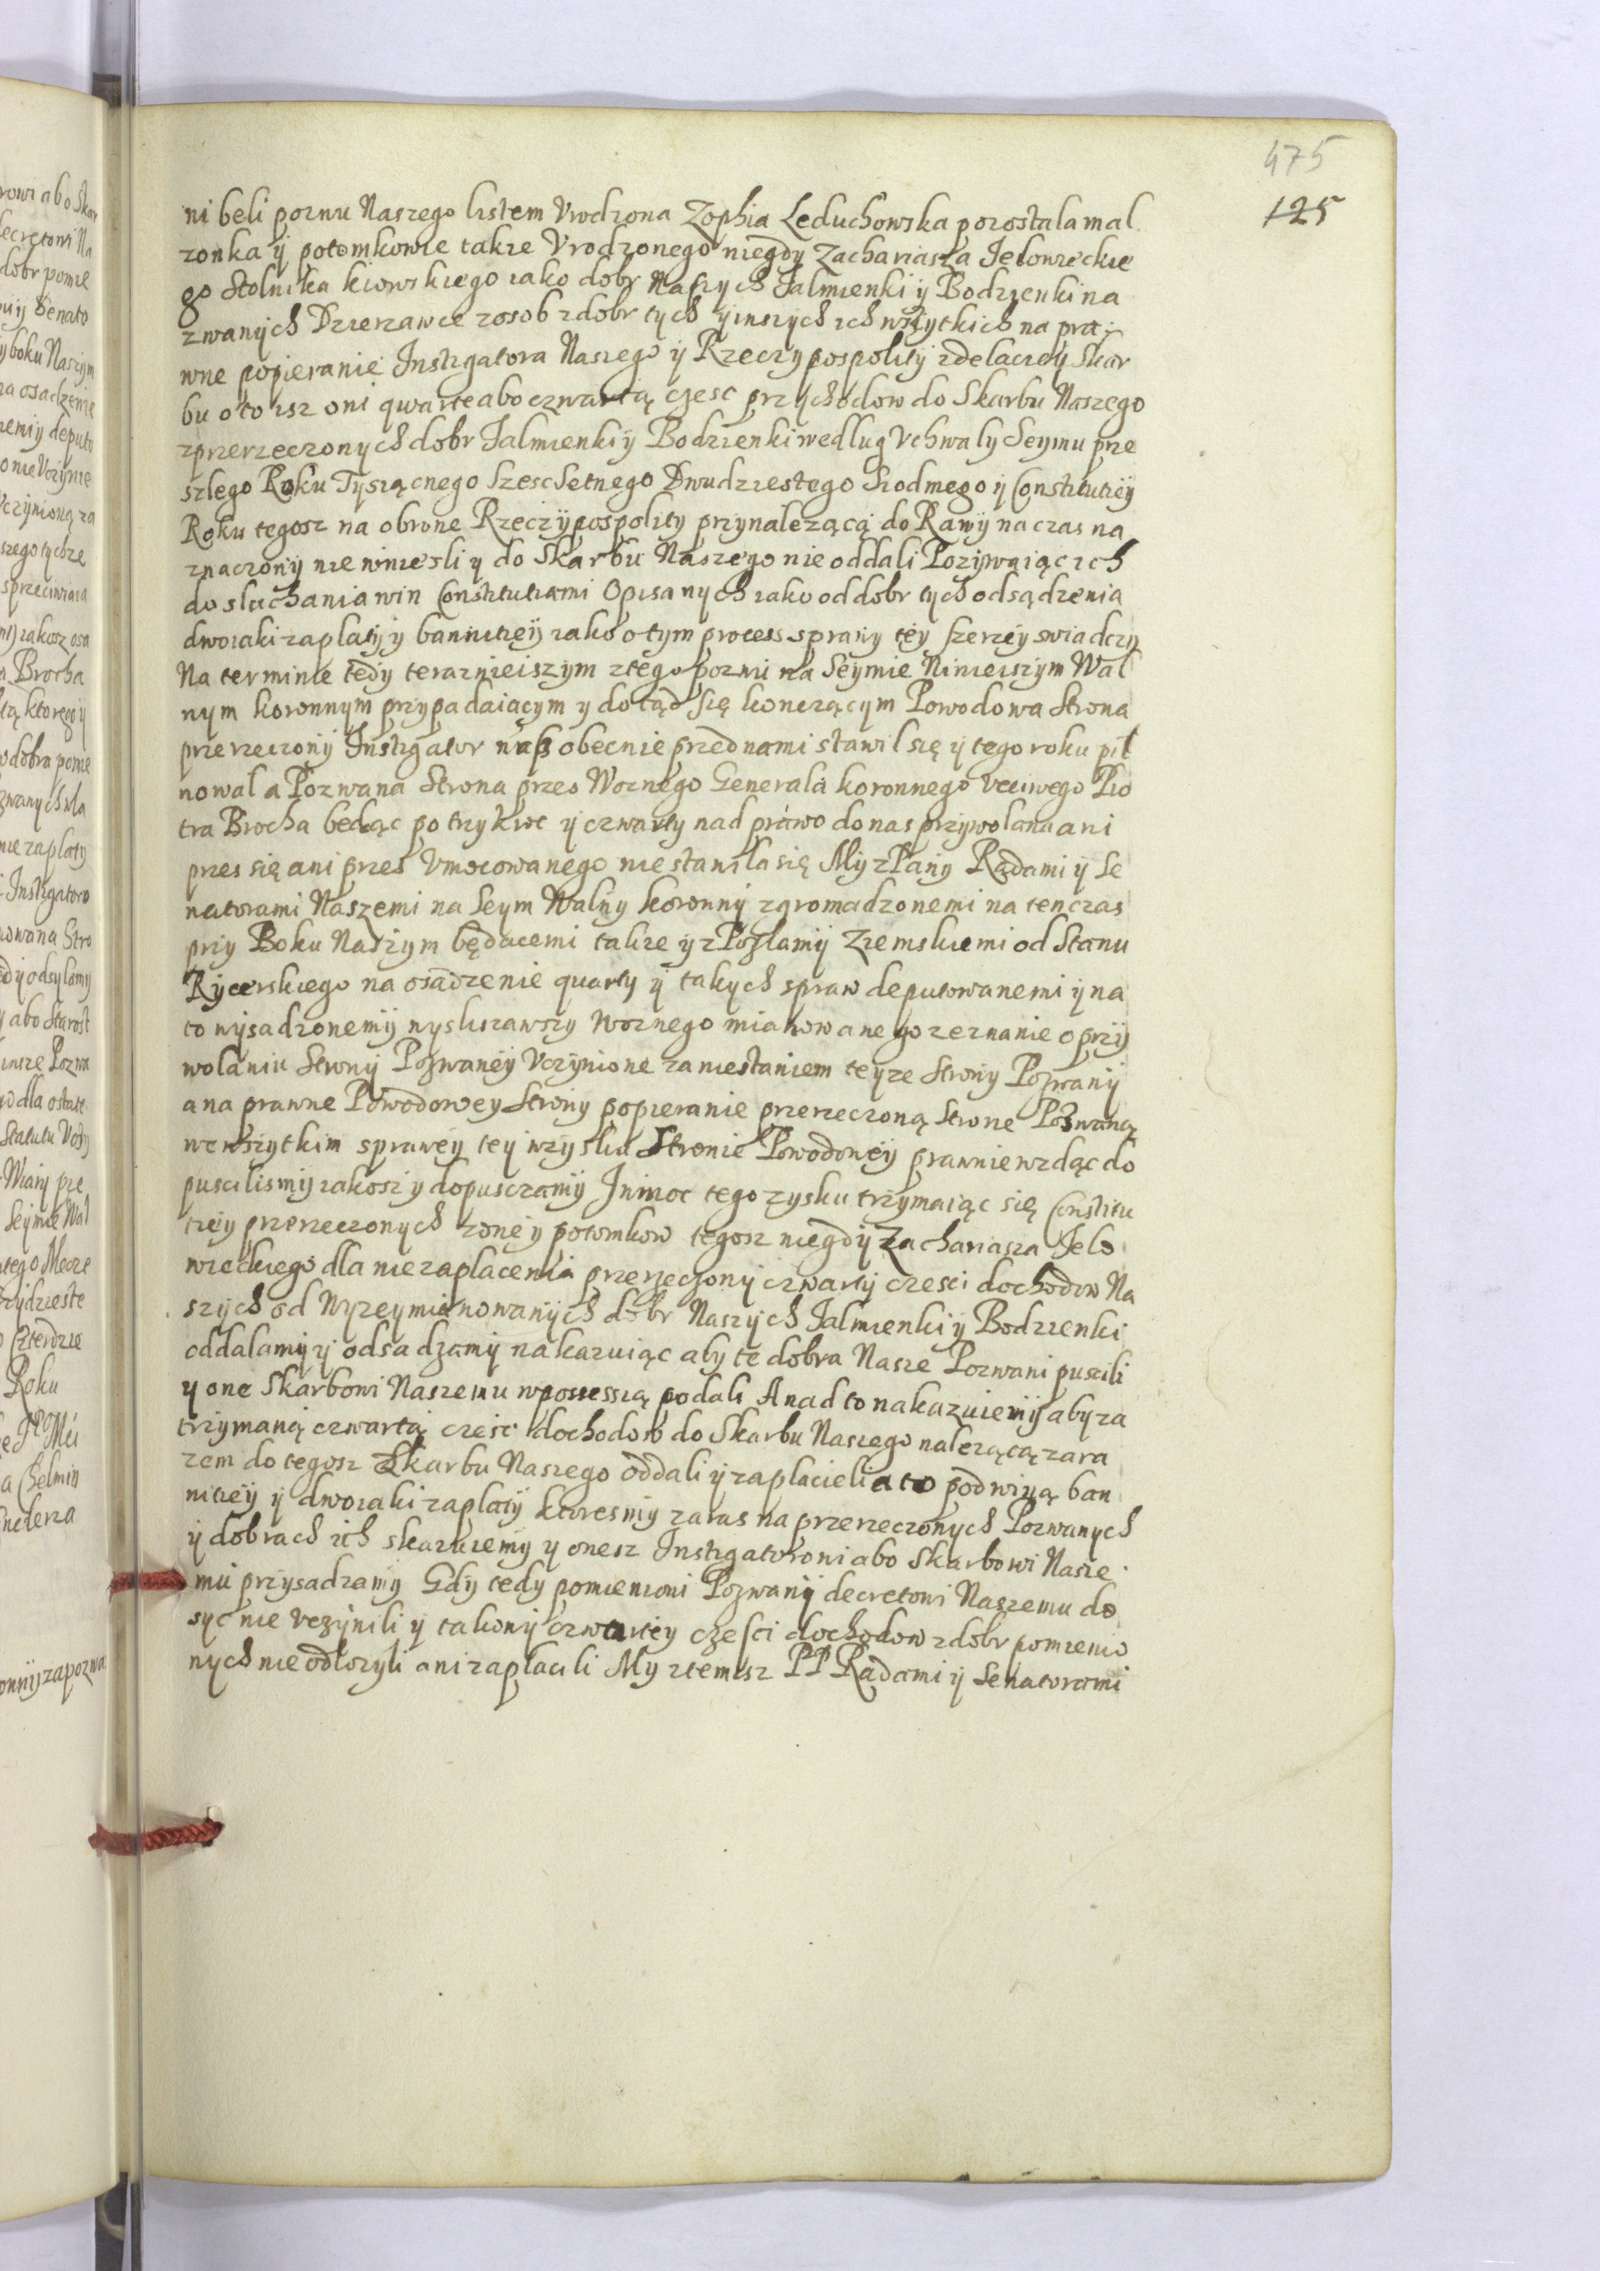 475
125
ni beli pozwu Naszego listem Urodzona Zophia Leduchowska pozostala mal
zonka ÿ potomkowie takze Urodzonego niegdy Zachariasza Jelowieckie
go Stolnika kiowskiego iako dobr Naszych Jalmienki ÿ Bodzienki na
zwanÿch Dzierzawce zosob zdobr tÿch ÿ inszÿch ich wszÿtkich na pra
wne popieranie Instigatora Naszego ÿ Rzeczÿ pospolitÿ zdelaciey Skar
bu oto isz oni qwarte abo czwartą czesc przÿchodow do Skarbu Naszego
zprzerzeczonÿch dobr Jalmienki ÿ Bodzienki wedlug Uchwaly Seymu prze
szlego Roku Tysiącnego Szescsetnego Dwudziestego Siodmego ÿ Constitutiey
Roku tegosz na obrone Rzeczÿpospolity przÿnalezącą do Rawÿ na czas na
znaczonÿ nie wniesli y do Skarbu Naszego nie oddali Pozÿwaiąc ich
do sluchania win Constitutiami Opisanÿch iako od dobr tÿch odsądzenia
dwoiaki zaplatÿ ÿ bannitieÿ iako o tym process sprawÿ teÿ szerzeÿ swiadczÿ
Na terminie tedy teraznieiszym ztego pozwu na Seymie Ninieiszÿm Wal
nym koronnym przÿpadaiącym y dotąd się konczącym Powodowa Strona
przerzeczonÿ Instigator nasz obecnie przed nami stawil się ÿ tego roku pil
nowal a Pozwana Strona przes Woznego Generala koronnego Uczciwego Pio
tra Brocha bedąc po trzykroc ÿ czwartÿ nad prawo do nas przÿwolana ani
przes się ani przes Umocowanego nie stawila się Mÿ z Panÿ Radami ÿ Se
natorami Naszemi na Seym Walnÿ koronnÿ zgromadzonemi na tenczas
przÿ Boku Naszÿm będącemi takze ÿ z Poslamÿ Ziemskiemi od Stanu
Rÿcerskiego na osadzenie quarty ÿ takÿch spraw deputowanemi ÿ na
to wÿsadzonemÿ wysluszawszy Woznego mianowanego zeznanie o przÿ
wolaniu Stronÿ Pozwaneÿ Uczÿnione za niestaniem teyze Stronÿ Pozwanÿ
a na prawne Powodowey Stronÿ popieranie przerzeczoną Strone Pozwaną
wewszÿtkim sprawÿ teÿ wzÿsku Stronie Powodoweÿ prawnie wzdąc do
puscilismÿ iakosz ÿ dopusczamÿ J w moc tego zysku trzymaiąc się Constitu
tieÿ przerzeczonÿch zone ÿ potomkow tegosz niegdÿ Zachariasza Jelo
wieckiego dla niezaplacenia przerzeczonÿ czwartÿ czesci dochodow Na
szÿch od Wyzeymianowanÿch dobr Naszÿch Jalmienki ÿ Bodzienki
oddalamÿ ÿ odsadzamÿ nakazuiąc aby te dobra Nasze Pozwani puscili
y one Skarbowi Naszemu wpossessią podali A nad to nakazuiemÿ abÿ za
trzÿmaną czwartą czesc dochodow do Skarbu Naszego nalezącą zara
zem do tegosz Skarbu Naszego oddali ÿ zaplacieli a to pod winą ban
nitieÿ ÿ dwoiaki zaplatÿ ktoresmÿ zaras na przerzeczonÿch Pozwanÿch
ÿ dobrach ich skazuiemÿ y onesz Instigatorowi abo Skarbowi Nasze
mu przysadzamÿ Gdÿ tedy pomienioni Pozwanÿ decretowi Naszemu do
syc nie Uczÿnili ÿ takowÿ czwartey czesci dochodow z dobr pomienio
nÿch nie odlozyli ani zaplacili Mÿ ztemisz PP Radami ÿ Senatorami